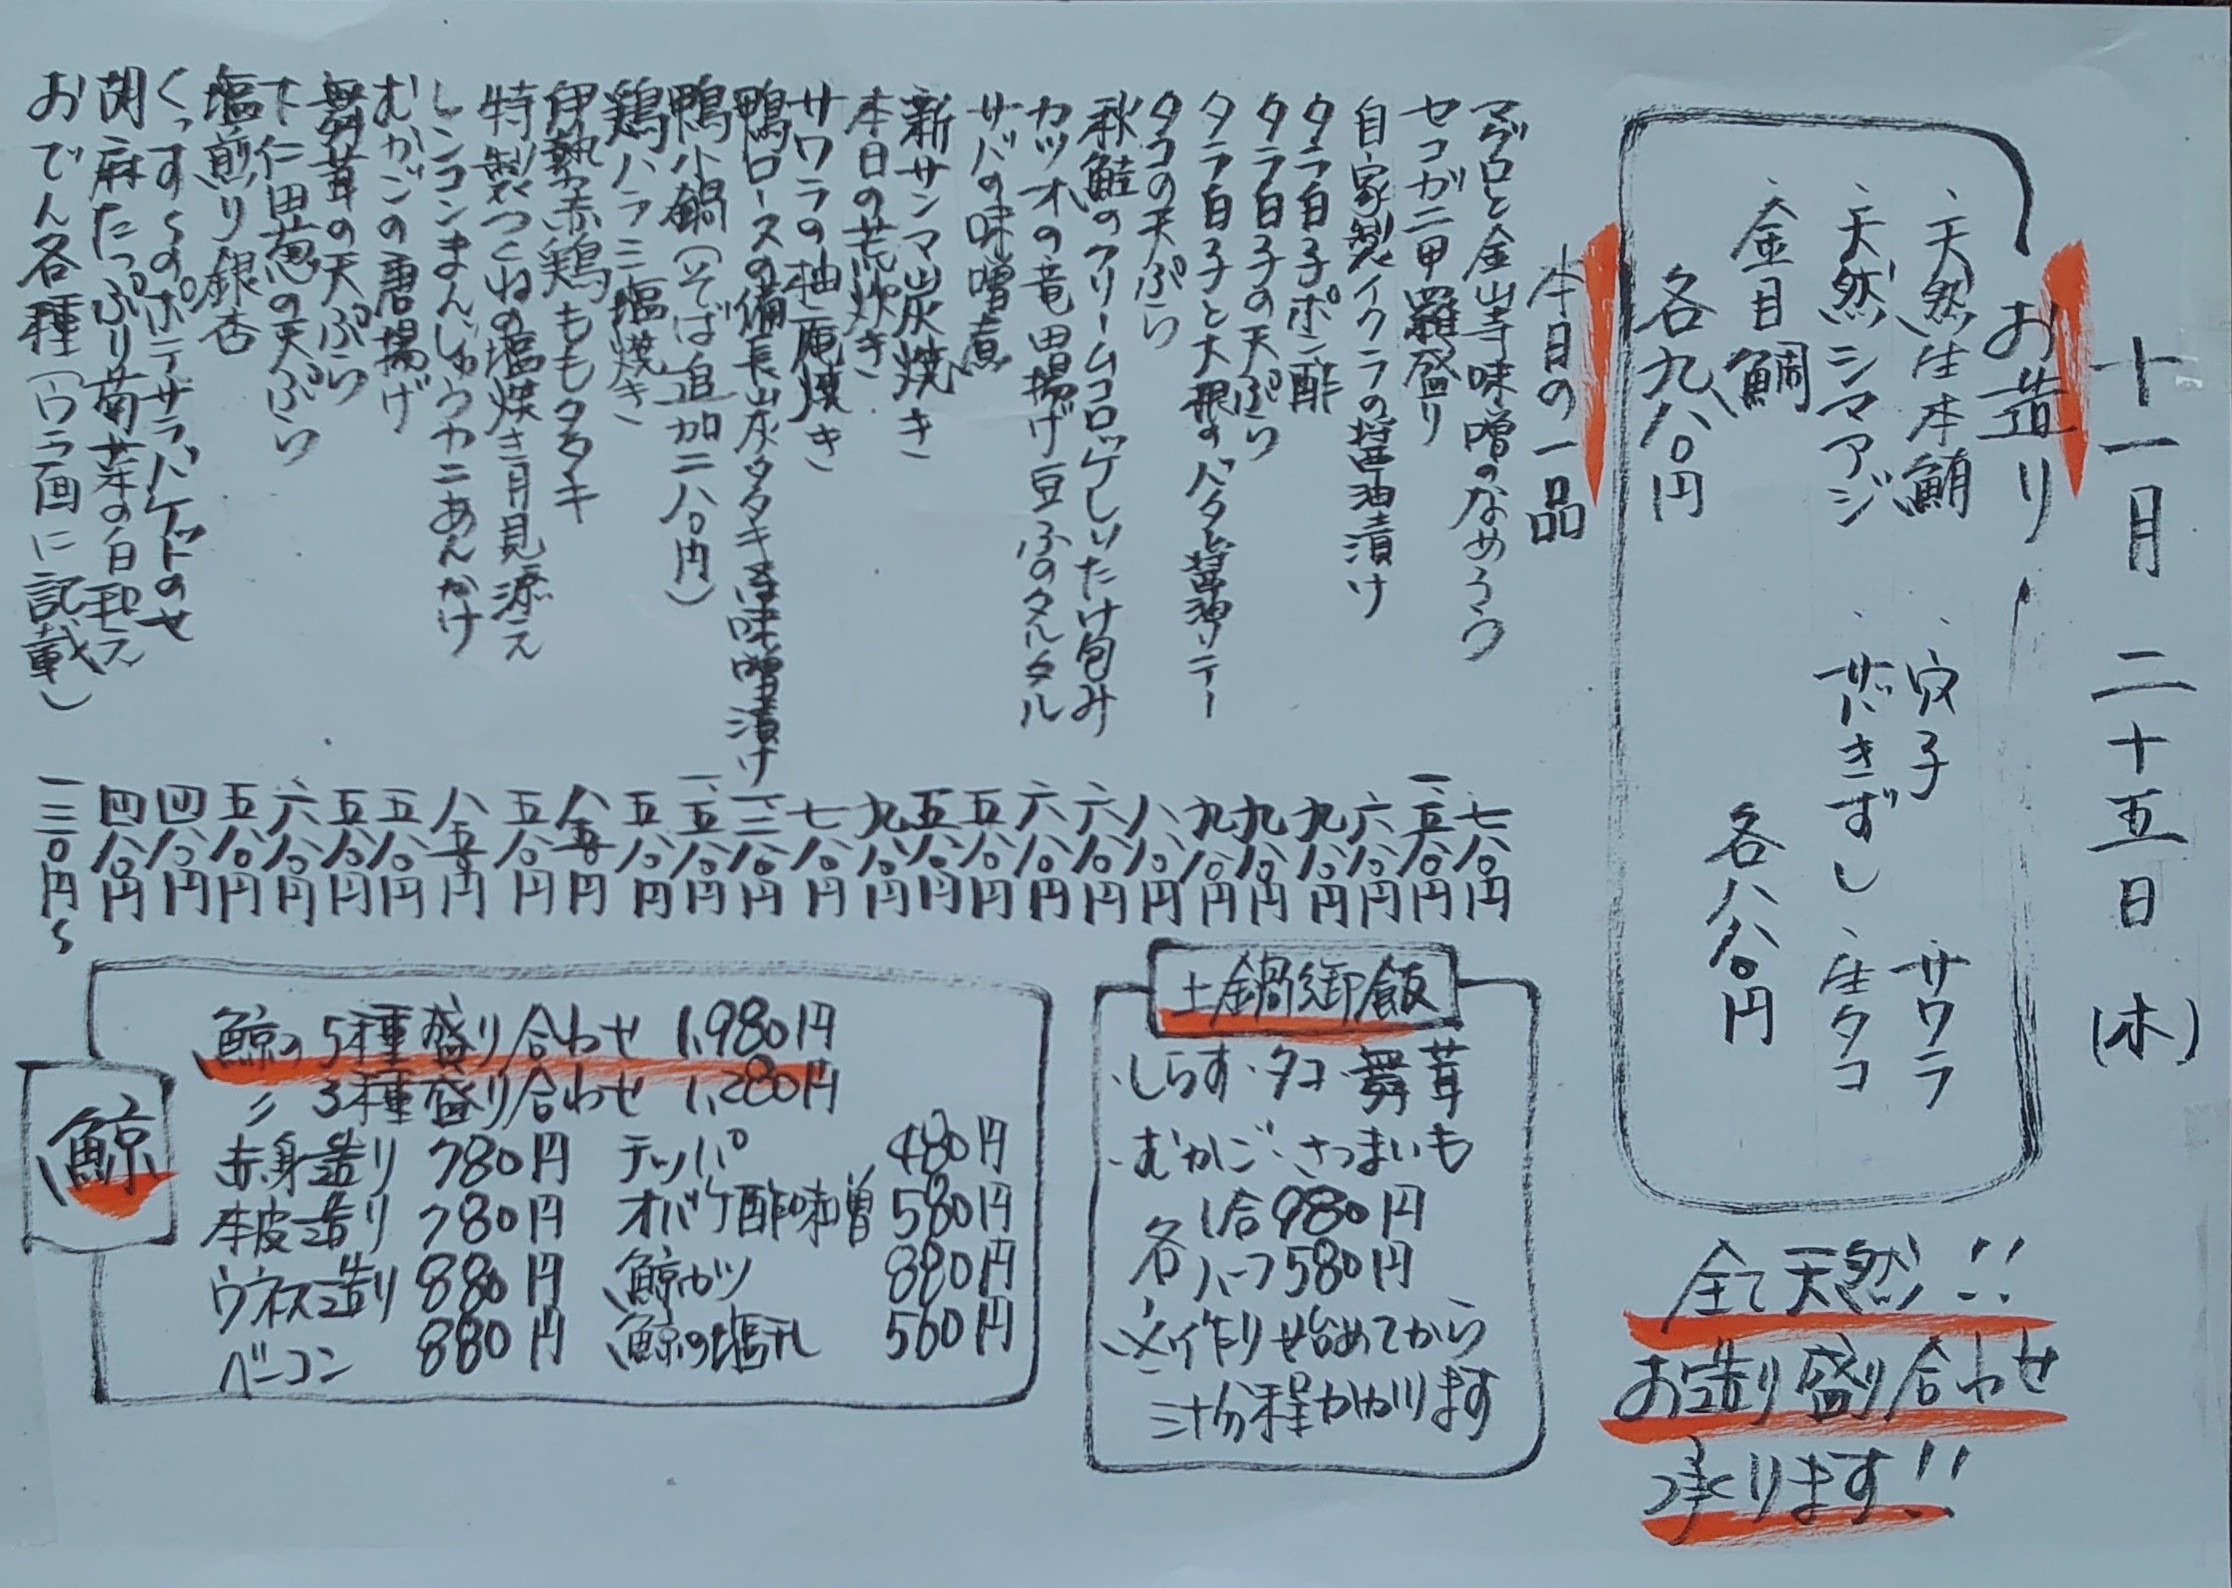 十一月 二十五日(木)
お造り
・天然生本鮪
・天然シマアジ
・金目鯛
各九八〇円
・穴子
・サバきずし
・サワラ
・生タコ
各八八〇円
全て天然!!
お造り盛り合わせ
承ります!!
本日の一品
マグロと金山寺味噌のなめろう 七八〇円
セコガニ甲羅盛り 一、五八〇円
自家製イクラの醤油漬け 六八〇円
タラ白子ポン酢 九八〇円
タラ白子の天ぷら 九八〇円
タラ白子と大根のバター醤油ソテー 九八〇円
タコの天ぷら 八八〇円
秋鮭のクリームコロッケしいたけ包み 六八〇円
カツオの竜田揚げ豆ふのタルタル 六八〇円
サバの味噌煮 五八〇円
新サンマ炭焼き 五八〇円
本日の荒炊き 九八〇円
サワラの柚庵焼き 七八〇円
鴨ロースの備長炭タタキ味噌漬け 一、二八〇円
鴨小鍋(そば追加二八〇円) 一、五八〇円
鶏ハラミ塩焼き 五八〇円
伊勢赤鶏ももタタキ 八五〇円
特製つくねの塩焼き月見添え 五八〇円
レンコンまんじゅうカニあんかけ 八五〇円
むかごの唐揚げ 五八〇円
舞茸の天ぷら 五八〇円
下仁田葱の天ぷら 六八〇円
塩煎り銀杏 五八〇円
くっすぅのポテサラ、バケットのせ 四八〇円
胡麻たっぷり菊菜の白和え 四八〇円
おでん各種(ウラ面に記載) 一三〇円~
土鍋御飯
・しらす・タコ・舞茸
・むかご・さつまいも
各1合980円
各ハーフ580円
※作り始めてから
三十分程かかります
鯨
鯨の5種盛り合わせ 1,980円
〃 3種盛り合わせ 1,280円
赤身造り 780円 テッパ 480円
本皮造り 780円 オバケ酢味噌 580円
ウネス造り 880円 鯨カツ 880円
ベーコン 880円 鯨の塩ユデ 560円